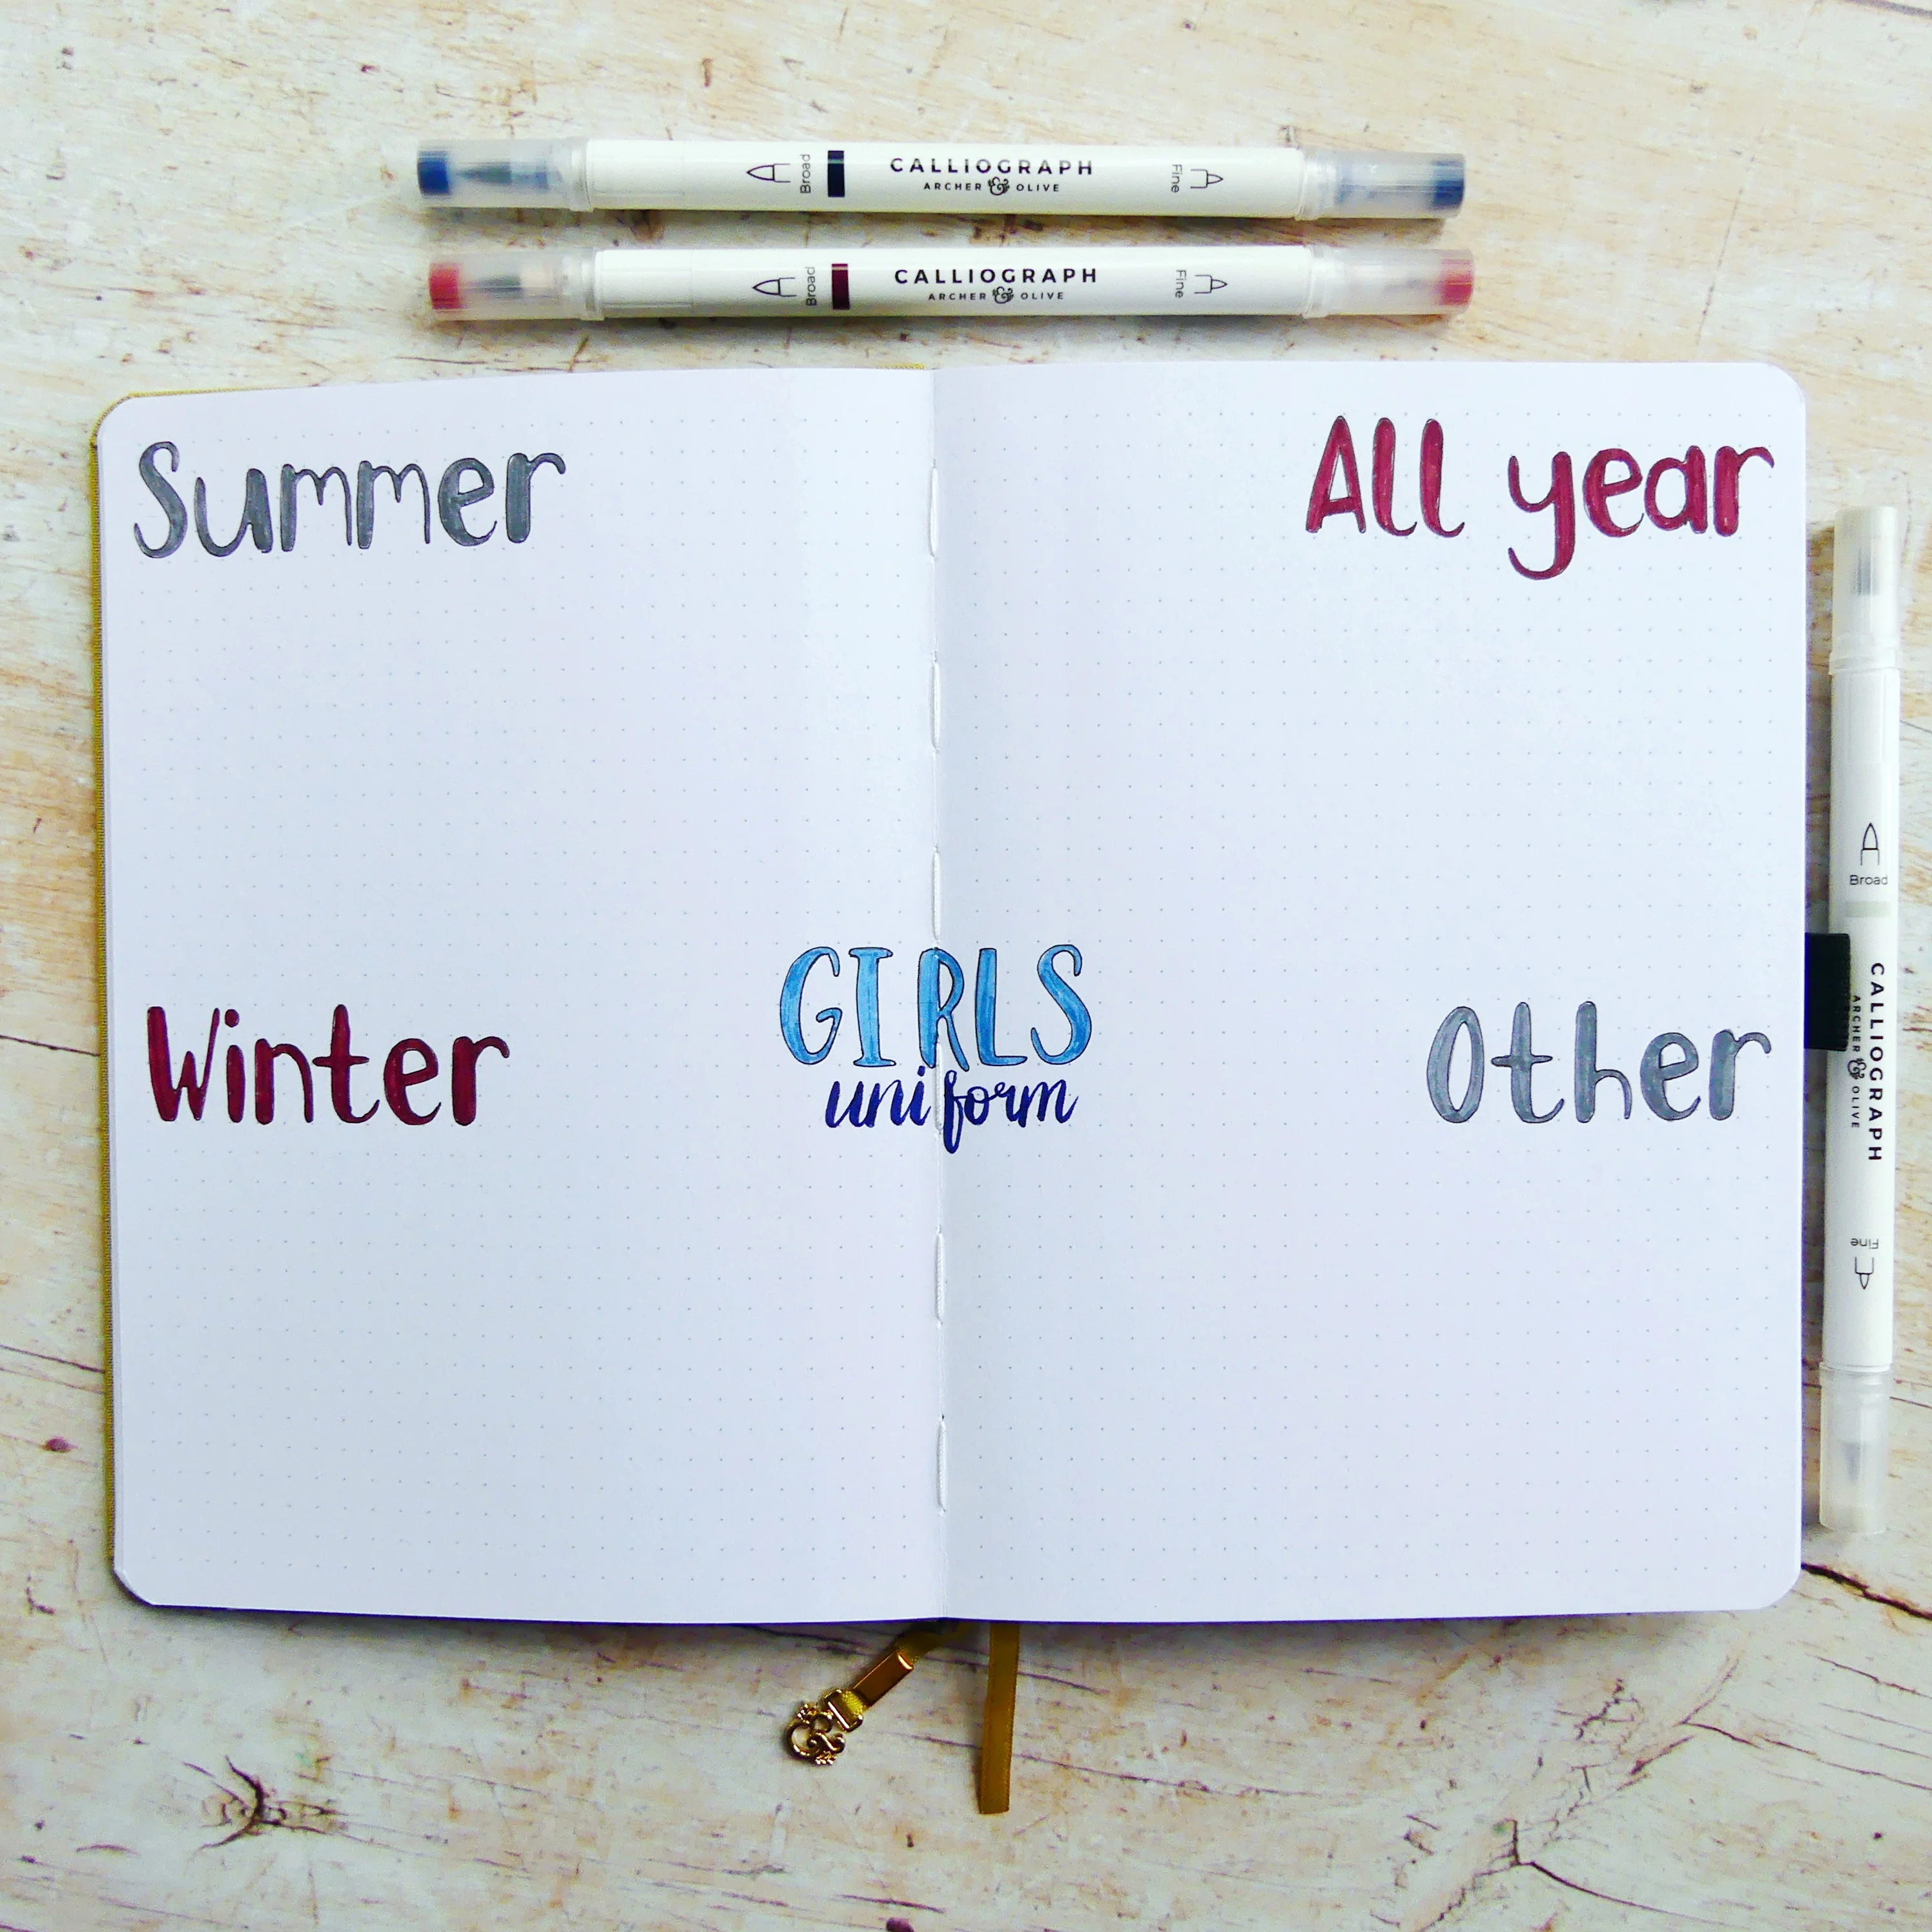 Broad CALLIOGRAPH Fine
ARCHER & OLIVE
Broad CALLIOGRAPH Fine
ARCHER & OLIVE
Summer
All year
GIRLS
uniform
Winter
Other
Broad CALLIOGRAPH Fine
ARCHER & OLIVE